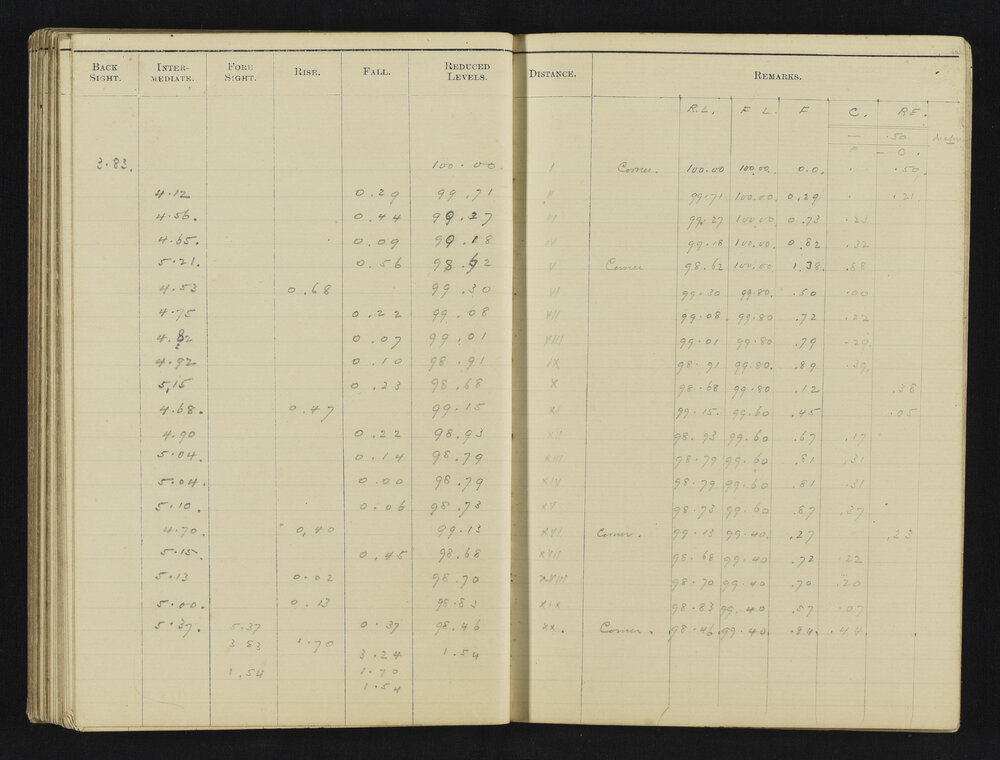 BACK SIGHT. INTER-MEDIATE. FORE SIGHT. RISE. FALL. REDUCED LEVELS. DISTANCE. REMARKS.
R.L. F L. F C. RE.
— .50
" - 0.
3.83. 100.00 I Corner. 100.00 100.00 0.0. .50
4.12 0.29 99.71 II 99.71 100.00 0.29 .21
4.56. 0.44 99.27 III 99.27 100.00 0.73 .23
4.65. 0.09 99.18 IV 99.18 100.00 0.82 .32
5.21. 0.56 98.62 V Corner 98.62 100.00 1.38. .88
4.53 0.68 99.30 VI 99.30 99.80 .50 .00
4.75 0.22 99.08 VII 99.08. 99.80 .72 .22
4.82 0.07 99.01 VIII 99.01 99.80 .79 .29
4.92 0.10 98.91 IX 98.91 99.80. .89 .39
5.15 0.23 98.68 X 98.68 99.80 .12 .38
4.68. 0.47 99.15 XI 99.15. 99.60 .45 .05
4.90 0.22 98.93 XII 98.93 99.60 .67 .17
5.04. 0.14 98.79 XIII 98.79 99.60 .81 .31
5.04. 0.00 98.79 XIV 98.79 99.60 .81 .31
5.10. 0.06 98.73 XV 98.73 99.60 .87 .37
4.70. 0.40 99.13 XVI Corner. 99.13 99.40. .27 .23
5.15. 0.45 98.68 XVII 98.68 99.40 .72 .22
5.13 0.02 98.70 XVIII 98.70 99.40 .70 .20
5.00. 0.13 98.83 XIX 98.83 99.40 .57 .07
5.37. 5.37 0.37 98.46 XX. Corner. 98.46. 99.40. .94. .44
3 83 1.70 3.24 1.54
1.54 1.70
1.54